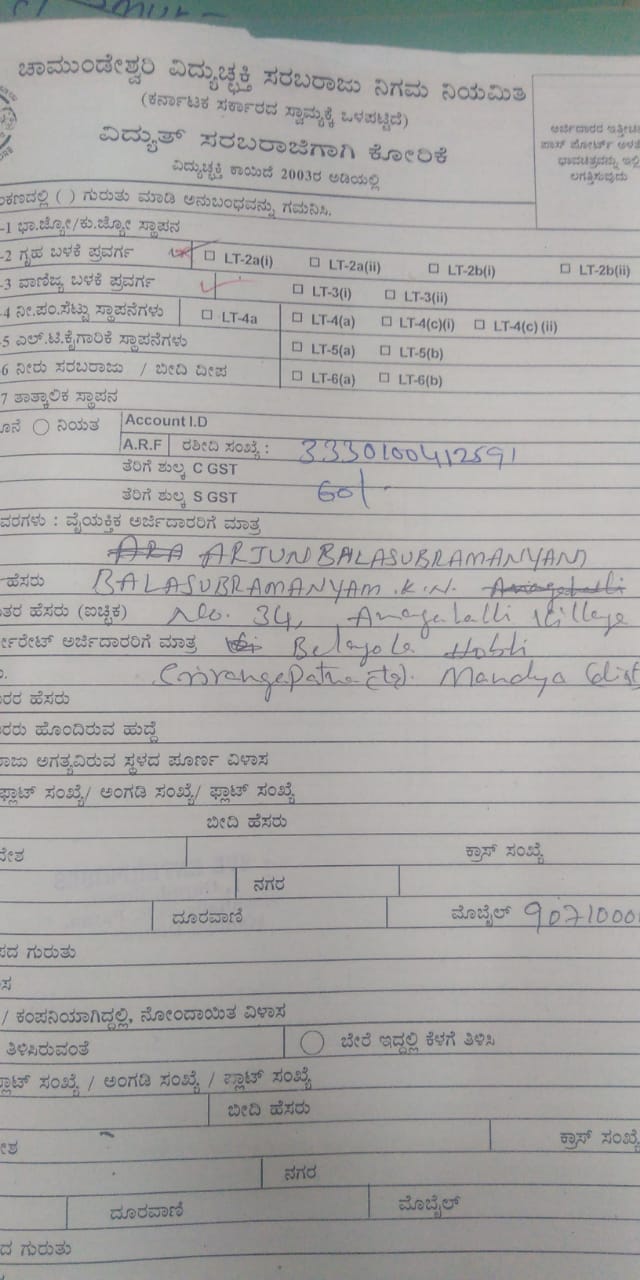 ಚಾಮುಂಡೇಶ್ವರಿ ವಿದ್ಯುಚ್ಛಕ್ತಿ ಸರಬರಾಜು ನಿಗಮ ನಿಯಮಿತ
(ಕರ್ನಾಟಕ ಸರ್ಕಾರದ ಸ್ವಾಮ್ಯಕ್ಕೆ ಒಳಪಟ್ಟಿದೆ)
ವಿದ್ಯುತ್ ಸರಬರಾಜಿಗಾಗಿ ಕೋರಿಕೆ
ವಿದ್ಯುಚ್ಛಕ್ತಿ ಕಾಯಿದೆ 2003ರ ಅಡಿಯಲ್ಲಿ
ಅರ್ಜಿದಾರರ ಇತ್ತೀಚಿ
ಪಾಸ್ ಪೋರ್ಟ್ ಅಳತೆ
ಭಾವಚಿತ್ರವನ್ನು ಇಲ್ಲಿ
ಲಗತ್ತಿಸುವುದು
ಂಕಣದಲ್ಲಿ ( ) ಗುರುತು ಮಾಡಿ ಅನುಬಂಧವನ್ನು ಗಮನಿಸಿ.
-1 ಭಾ.ಜ್ಯೋ/ಕು.ಜ್ಯೋ ಸ್ಥಾಪನ
-2 ಗೃಹ ಬಳಕೆ ಪ್ರವರ್ಗ LT-2a(i) LT-2a(ii) LT-2b(i) LT-2b(ii)
-3 ವಾಣಿಜ್ಯ ಬಳಕೆ ಪ್ರವರ್ಗ LT-3(i) LT-3(ii)
-4 ನೀ.ಪಂ.ಸೆಟ್ಟು ಸ್ಥಾಪನೆಗಳು LT-4a LT-4(a) LT-4(c)(i) LT-4(c) (ii)
-5 ಎಲ್.ಟಿ.ಕೈಗಾರಿಕೆ ಸ್ಥಾಪನೆಗಳು LT-5(a) LT-5(b)
-6 ನೀರು ಸರಬರಾಜು / ಬೀದಿ ದೀಪ LT-6(a) LT-6(b)
-7 ತಾತ್ಕಾಲಿಕ ಸ್ಥಾಪನ
ನಿಯತ Account I.D
A.R.F ರಶೀದಿ ಸಂಖ್ಯೆ : 3330100412591
ತೆರಿಗೆ ಶುಲ್ಕ C GST
ತೆರಿಗೆ ಶುಲ್ಕ S GST 60/-
ವರಗಳು : ವೈಯಕ್ತಿಕ ಅರ್ಜಿದಾರರಿಗೆ ಮಾತ್ರ
ARJUN BALASUBRAMANYAM
ಹೆಸರು BALASUBRAMANYAM.K.N.
ತರ ಹೆಸರು (ಐಚ್ಛಿಕ) No. 34, Anagalalli Village
ರ್ಪೊರೇಟ್ ಅರ್ಜಿದಾರರಿಗೆ ಮಾತ್ರ Belagola Hobli
Srirangapatna (tq). Mandya (dist
ರರ ಹೆಸರು
ರರು ಹೊಂದಿರುವ ಹುದ್ದೆ
ರಾಜು ಅಗತ್ಯವಿರುವ ಸ್ಥಳದ ಪೂರ್ಣ ವಿಳಾಸ
ಫ್ಲಾಟ್ ಸಂಖ್ಯೆ/ ಅಂಗಡಿ ಸಂಖ್ಯೆ/ ಫ್ಲಾಟ್ ಸಂಖ್ಯೆ
ಬೀದಿ ಹೆಸರು
ದೇಶ ಕ್ರಾಸ್ ಸಂಖ್ಯೆ
ನಗರ
ದೂರವಾಣಿ ಮೊಬೈಲ್ 90710000
ಪದ ಗುರುತು
ಸ
/ ಕಂಪನಿಯಾಗಿದ್ದಲ್ಲಿ, ನೋಂದಾಯಿತ ವಿಳಾಸ
ತಿಳಿಸಿರುವಂತೆ ಬೇರೆ ಇದ್ದಲ್ಲಿ ಕೆಳಗೆ ತಿಳಿಸಿ
ಫ್ಲಾಟ್ ಸಂಖ್ಯೆ / ಅಂಗಡಿ ಸಂಖ್ಯೆ / ಪ್ಲಾಟ್ ಸಂಖ್ಯೆ
ಬೀದಿ ಹೆಸರು
ಕ್ರಾಸ್ ಸಂಖ್ಯೆ
ನಗರ
ದೂರವಾಣಿ ಮೊಬೈಲ್
ದ ಗುರುತು